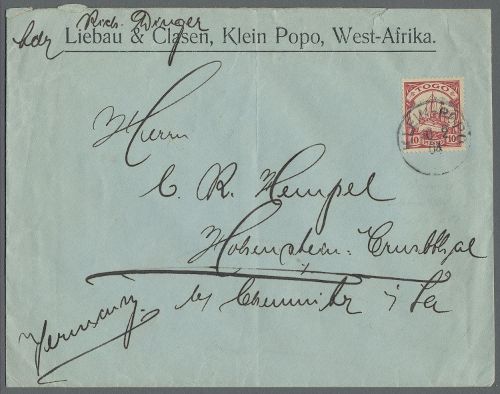 Rich. Dinger
Liebau & Clasen, Klein Popo, West-Afrika.
TOGO
10 10
KLEIN POPO
04
Herrn
C. R. Hempel
Hohenstein-Ernstthal
bei Chemnitz i/Sa
Germany.